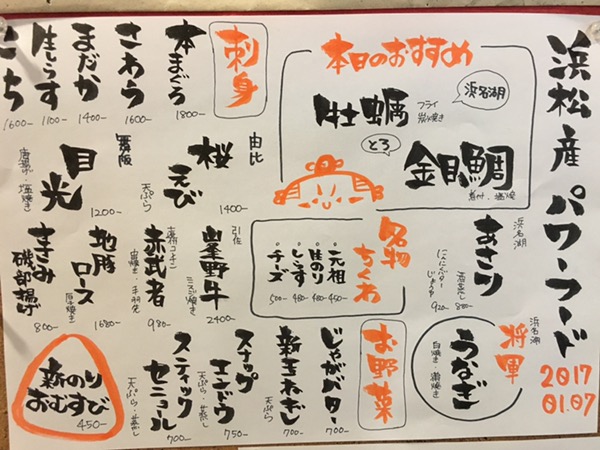 浜松産パワーフード
2017
01.07
本日のおすすめ
浜名湖
牡蠣
フライ
炭焼き
とろ
金目鯛
煮付・塩焼
浜名湖
あさり
酒蒸し 880-
にんにくバターじょうゆ 920-
浜名湖
将軍
うなぎ
白焼き・蒲焼き
名物ちくわ
・元祖 450-
・生のり 480-
・しらす 480-
・チーズ 500-
お野菜
じゃがバター 700-
新玉ねぎ
天ぷら
700-
スナップエンドウ
天ぷら・蒸し
750-
スティックセニョール
天ぷら・蒸し
700-
刺身
本まぐろ 1800-
さわら 1600-
まだか 1400-
生しらす 1100-
とち 1600-
由比
桜えび
天ぷら
1400-
舞阪
目光
唐揚・塩焼き
1200-
引佐
峯野牛
ミスジ焼き
2400-
赤武者
塩焼き・手羽先
980-
地豚ロース
厚き焼き
1680-
すさみ磯部揚げ
800-
新のりおむすび
450-